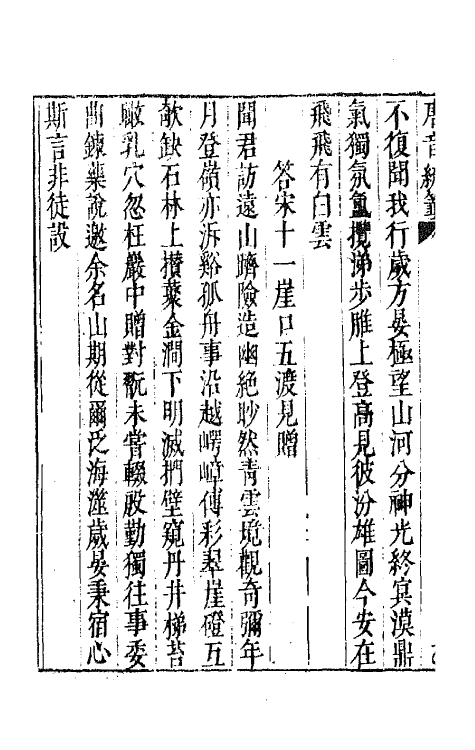 唐音統籖
不復聞我行歲方晏極望山河分神光終冥漠鼎
氣獨氛氳攬涕步脽上登高見彼汾雄圖今安在
飛飛有白雲
答宋十一崖口五渡見贈
聞君訪遠山躋險造幽絕眇然青雲境觀奇彌年
月登嶺亦泝谿孤舟事沿越崿嶂傳彩翠崖磴互
欹缺石林上攅叢金澗下明滅捫壁窺丹井梯苔
瞰乳穴忽枉巖中贈對翫未嘗輟殷勤獨往事委
曲鍊藥說邀余名山期從爾泛海澨歲晏秉宿心
斯言非徒設